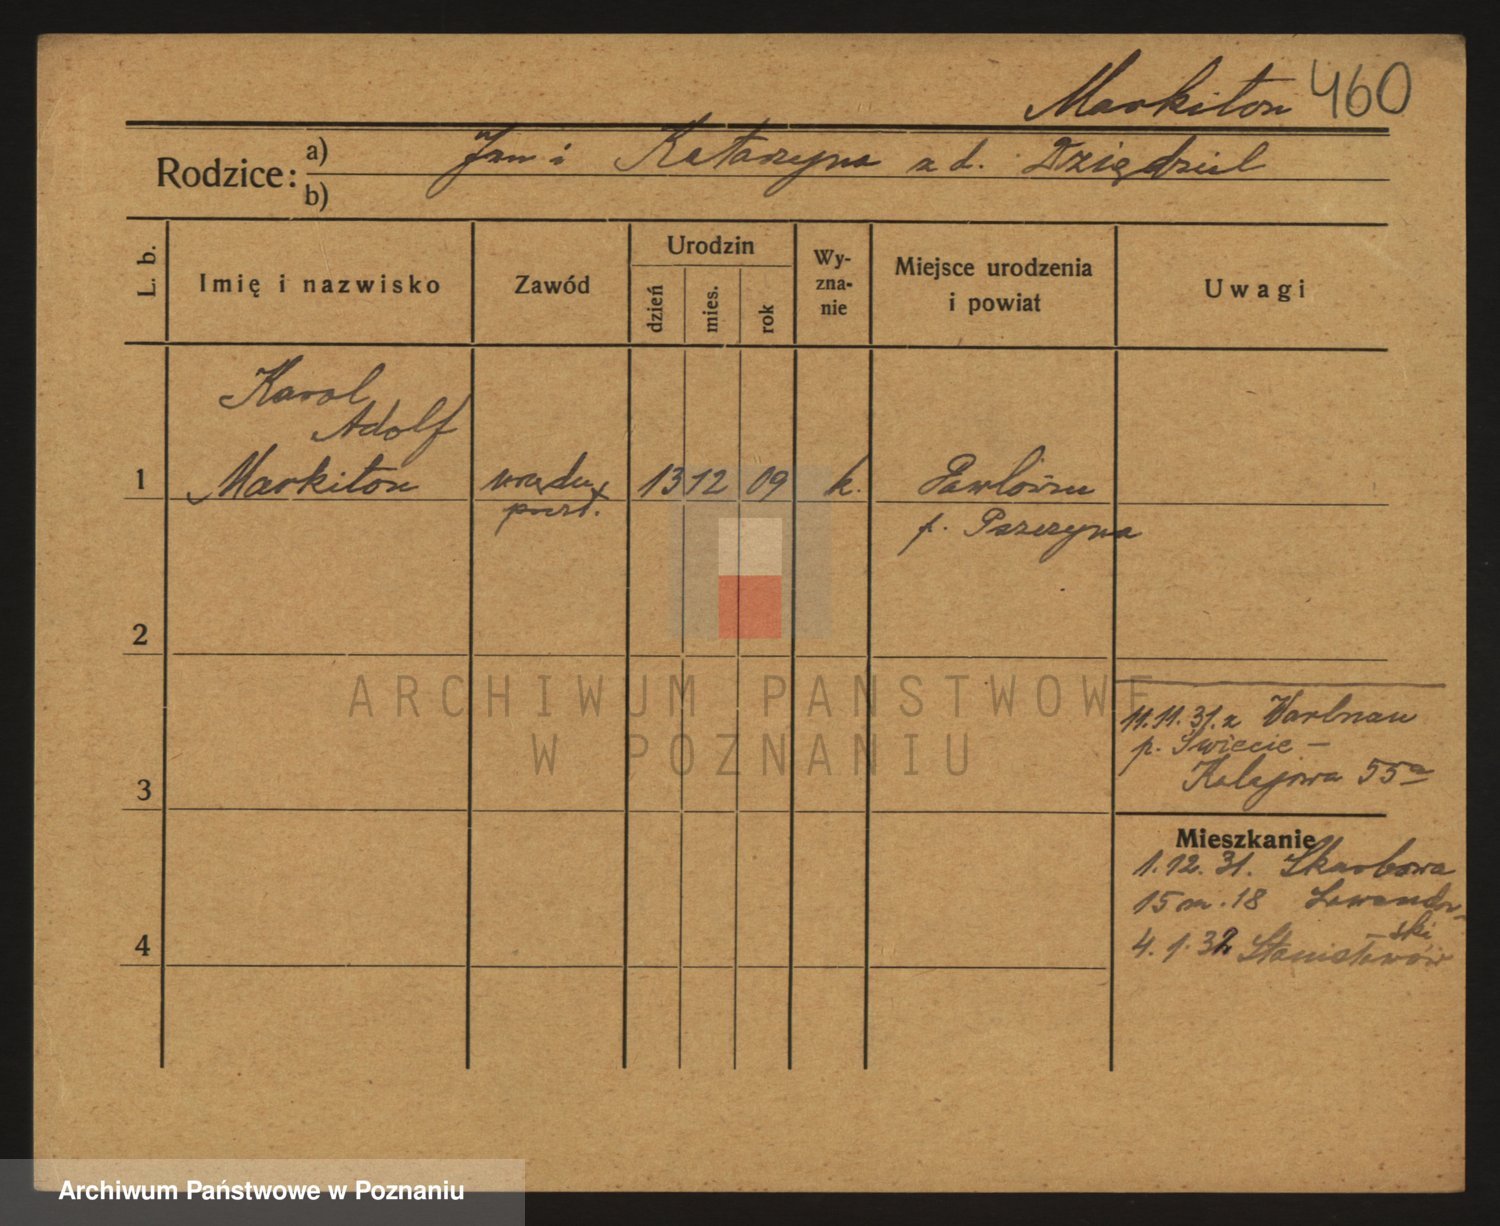 Markiton 460
Rodzice: a) Jan i Katarzyna z d. Dziędziel
b)
L. b.
Imię i nazwisko
Zawód
Urodzin
dzień
mies.
rok
Wy-
zna-
nie
Miejsce urodzenia
i powiat
Uwagi
Karol
Adolf
1 Markiton urzędn. 13 12 09 k. Pawłów
poczt. p. Pszczyna
2
11.11.31. z
p. Świecie –
3 Kolejowa 55a
Mieszkanie
1.12.31. Skarbowa
15 m. 18
4 4.1.32 Stanisławów
ARCHIWUM PANSTWOWE
W POZNANIU
Archiwum Państwowe w Poznaniu